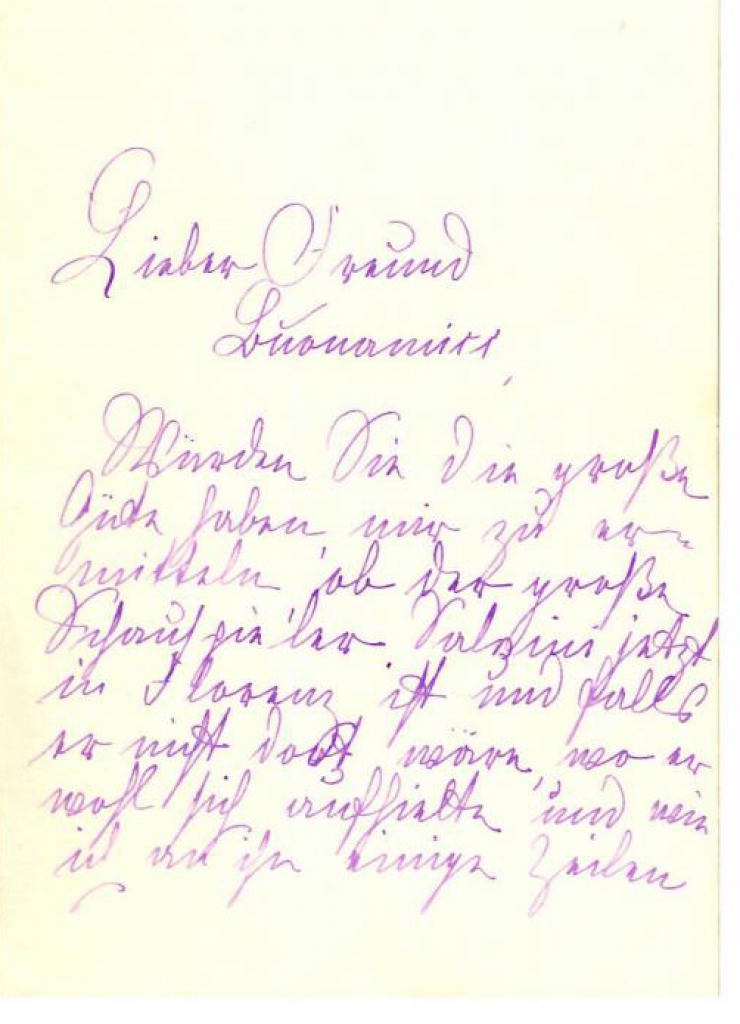 Lieber Freund
Buonamici,
Würden Sie die große
Güte haben, mir zu er-
mitteln, ob der große
Schauspieler Salvini jetzt
in Florenz ist und falls
er nicht dort wäre, wo er
wohl sich aufhielte, und wie
ich an ihn einige Zeilen